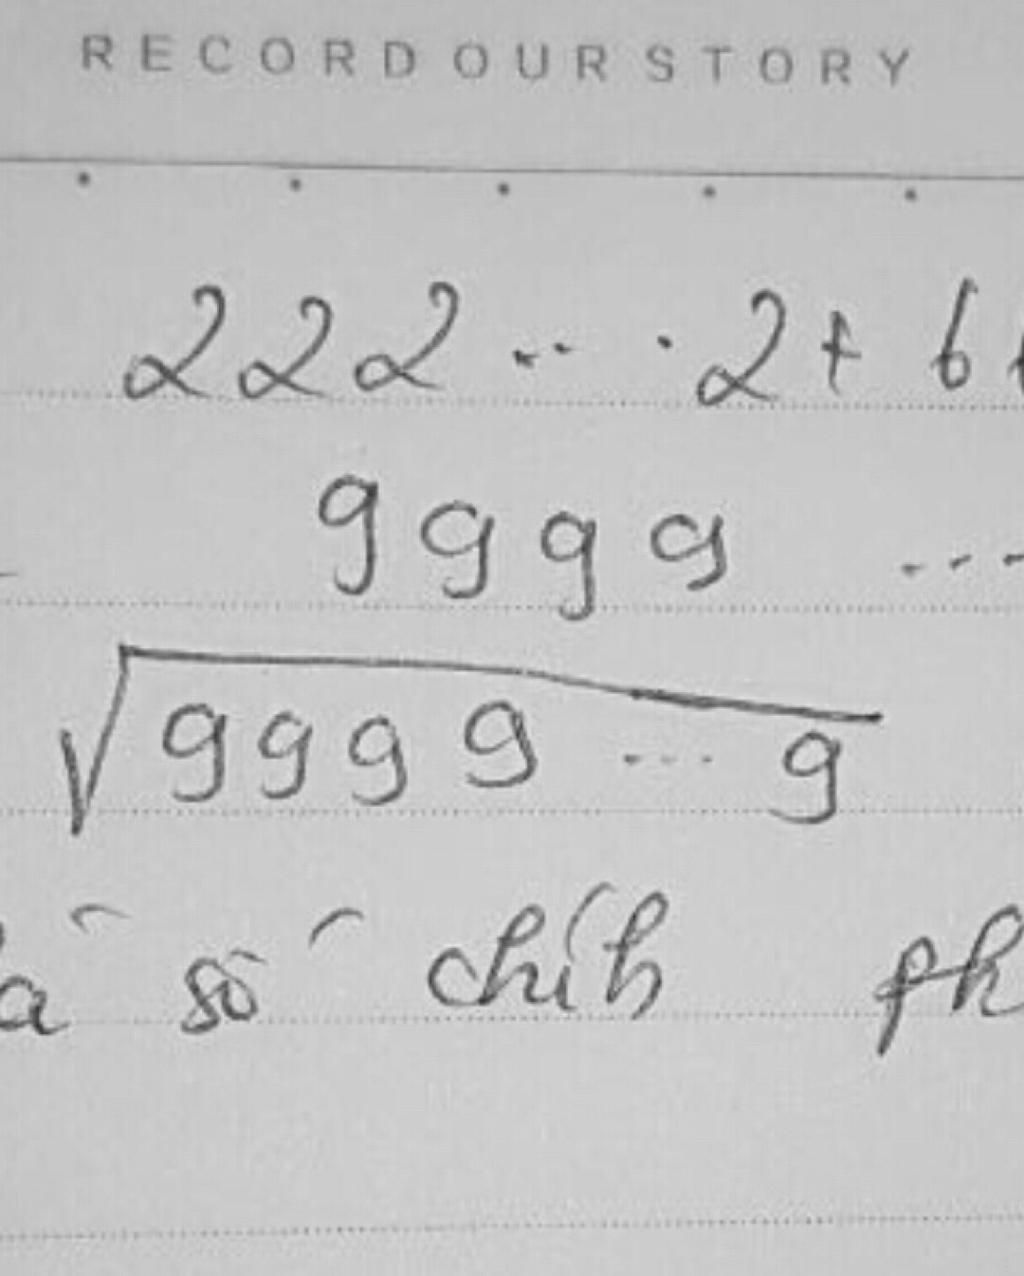 RECORD OUR STORY
222... .2+ 6
9999 ...
√9999...9
số chíh ph